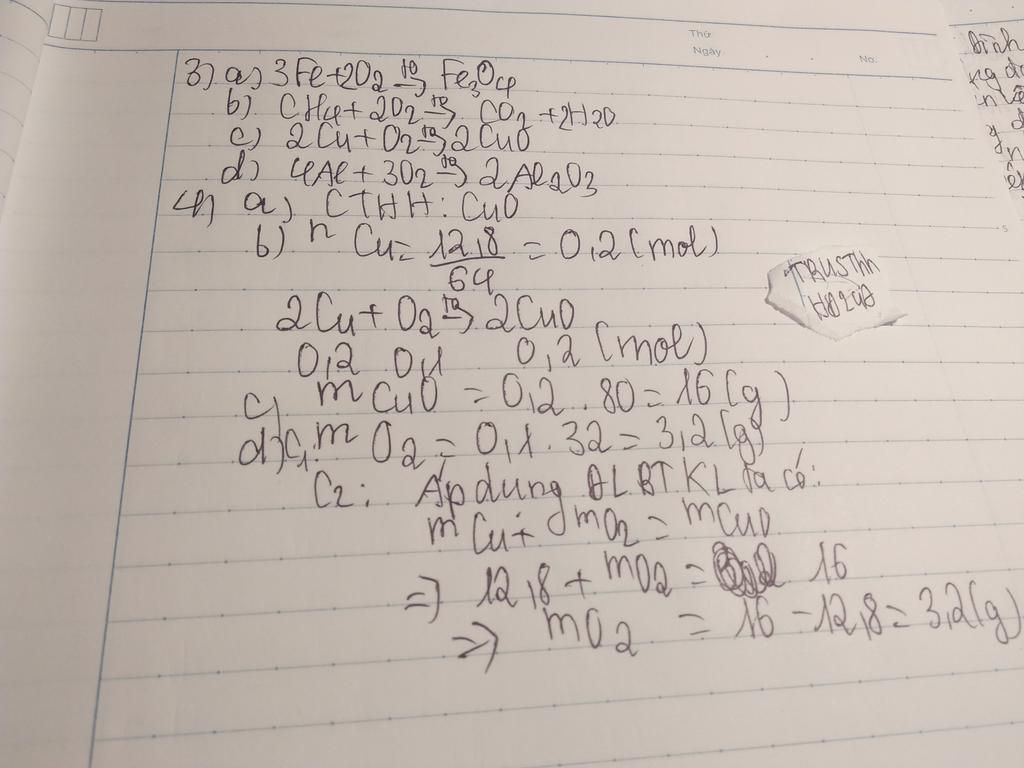 Thứ
Ngày
No.
3) a) 3Fe+2O2 t° → Fe3O4
b) CH4 + 2O2 t° → CO2 + 2H2O
c) 2Cu + O2 t° → 2CuO
d) 4Al + 3O2 t° → 2Al2O3
4) a) CTHH: CuO
b) n Cu = 12,8/64 = 0,2 (mol)
2Cu + O2 t° → 2CuO
0,2 0,1 0,2 (mol)
c) m CuO = 0,2 . 80 = 16 (g)
d) C1 m O2 = 0,1 . 32 = 3,2 (g)
C2: Áp dụng ĐLBTKL ta có:
m Cu + mO2 = mCuO
=) 12,8 + mO2 = 16
=) mO2 = 16 - 12,8 = 3,2 (g)